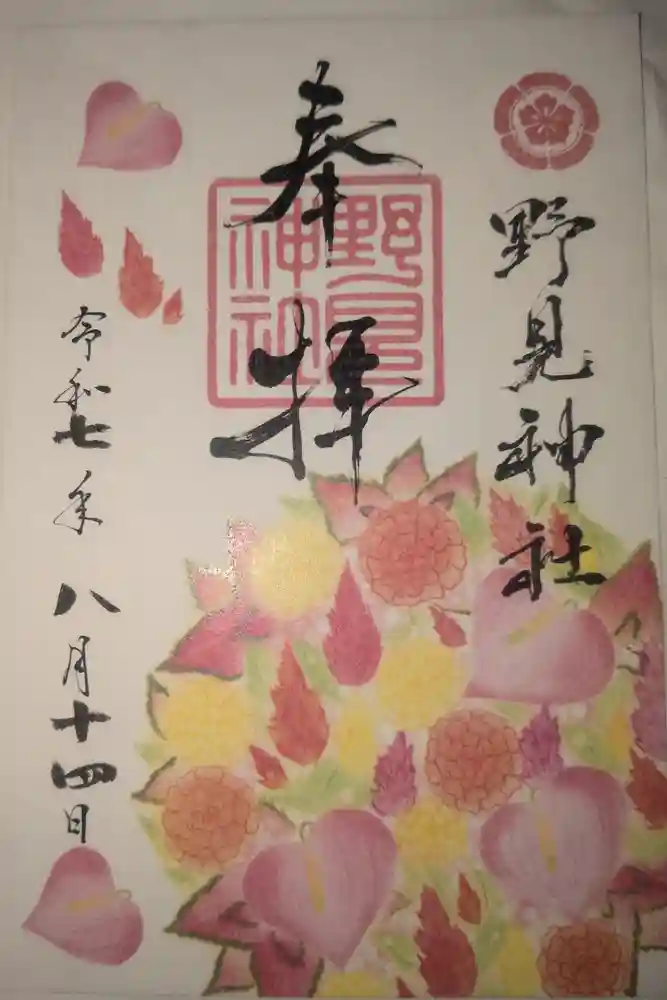 野見神社
奉拝
野見
神社
令和七年八月十四日